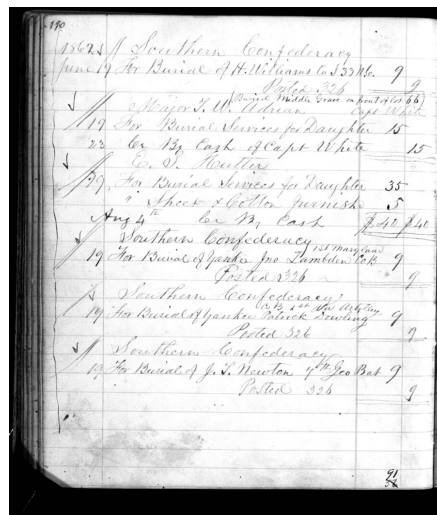 190
1862 Southern Confederacy
June 19 For Burial of H. Williams Co I 33 N.C. 9
Posted 326 9
(Buried Middle Grave in front of lot 66)
Major T. W. Adrian Capt White
19 For Burial Services for Daughter 15
23 Cr By Cash of Capt White 15
E. S. Hutter
29 For Burial Services for Daughter 35
" Sheet & Cotton furnish 5
Aug 4th Cr By Cash $40 $40
Southern Confederacy
1st Maryland
19 For Burial of Yankee Jno Lambden Co B 9
Posted 326 9
Southern Confederacy
Co B 1st Artillery
19 For Burial of Yankee Patrick Dowling 9
Posted 326 9
Southern Confederacy
19 For Burial of J. T. Newton 7th Geo Bat 9
Posted 326 9
91